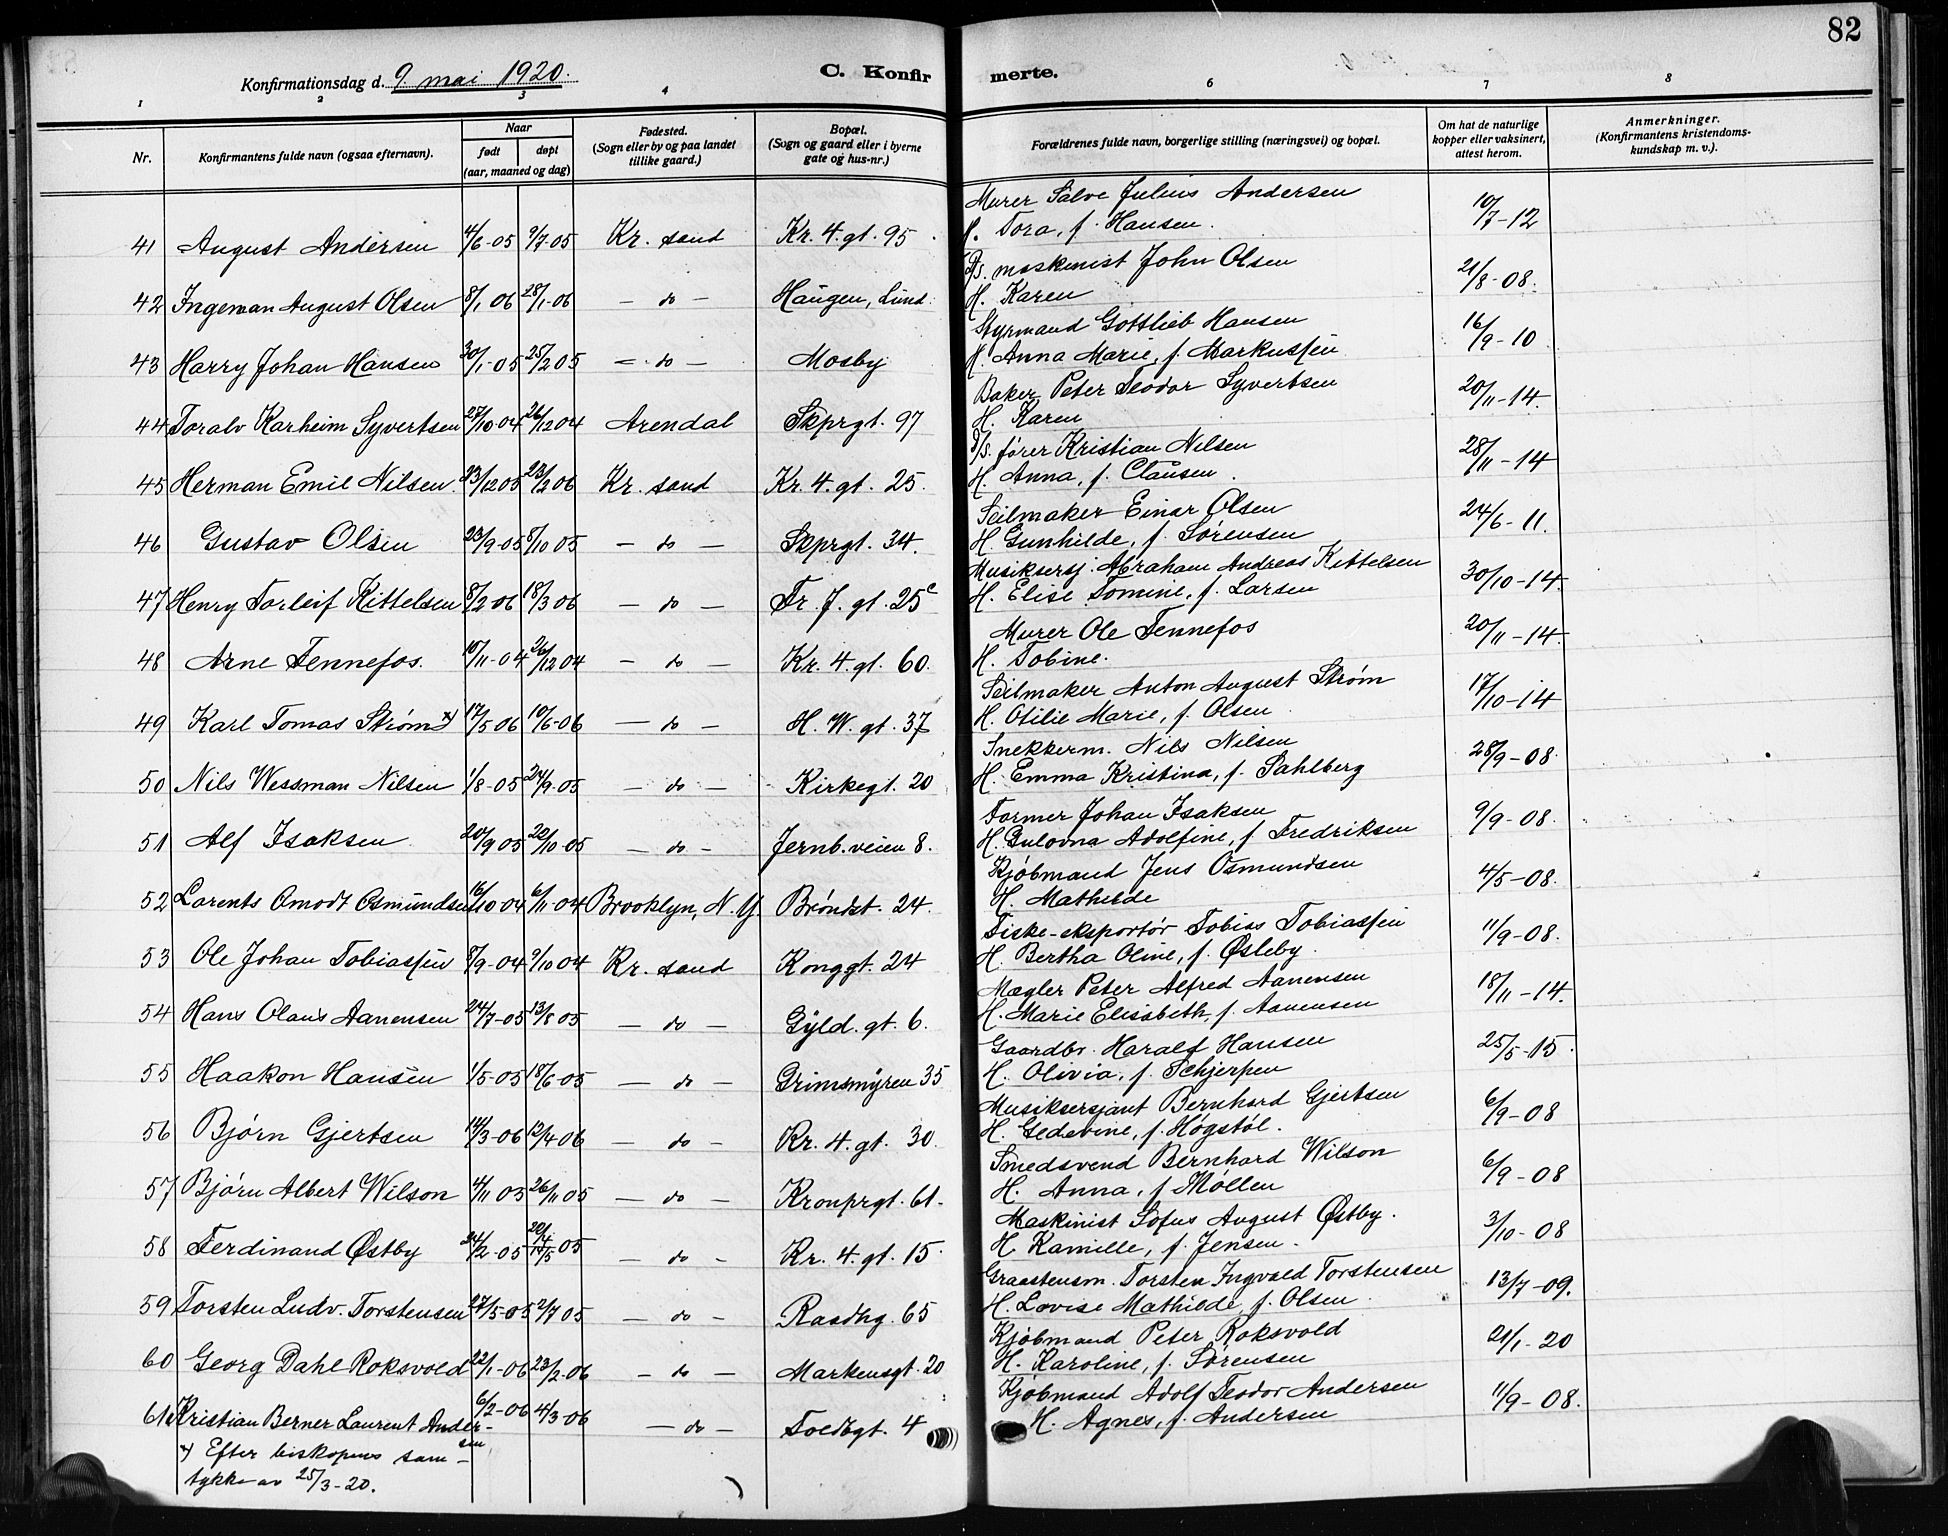 82
Konfirmationsdag d. 9. mai 1920.
C. Konfirmerte.
1 2 3 4 6 7 8
Nr.
Konfirmantens fulde navn (ogsaa efternavn).
Naar
født
døpt
(aar, maaned og dag)
Fødested.
(Sogn eller by og paa landet
tillike gaard.)
Bopæl.
(Sogn og gaard eller i byerne
gate og hus-nr.)
Forældrenes fulde navn, borgerlige stilling (næringsvei) og bopæl.
Om hat de naturlige
kopper eller vaksinert,
attest herom.
Anmerkninger.
(Konfirmantens kristendoms-
kundskap m. v.).
Murer Salve Julius Andersen
41 August Andersen 4/6-05 9/7-05 Kr. sand Kr. 4. gt. 95. H. Tora, f. Hansen. 10/7-12
D/s. maskinist John Olsen
42 Ingeman August Olsen 8/1 06 28/1-06 - do - Haugen, Lund. H. Karen 21/8-08.
Styrmand Gottlieb Hansen
43 Harry Johan Hansen 30/1-05 25/2 05 - do - Mosby H. Anna Marie, f. Markussen 16/9-10
Baker Peter Teodor Syvertsen
44 Toralv Karheim Syvertsen 27/10-04 26/12 04 Arendal Skprgt. 97 H. Karen 20/11-14.
D/s. fører Kristian Nilsen
45 Herman Emil Nilsen. 23/12 05 23/2 06 Kr. sand Kr. 4. gt. 25. H. Anna, f. Clausen. 28/11-14
Seilmaker Einar Olsen
46 Gustav Olsen 23/9-05 8/10 05 - do - Skprgt. 34. H. Gunhilde, f. Sørensen 24/6-11.
Musiksersj. Abraham Andreas Kittelsen
47 Henry Torleif Kittelsen 8/2 06 18/3 06 - do - Fr. J. gt. 25c H. Elise Tomine, f. Larsen 30/10-14.
Murer Ole Tennefos
48 Arne Tennefos. 15/11-04 26/12 04 - do - Kr. 4. gt. 60. H. Tobine. 20/11-14.
Seilmaker Anton August Strøm
49 Karl Tomas Strøm x) 17/5 06 10/6-06 - do - H. W. gt. 37 H. Otilie Marie, f. Olsen. 17/10-14
Snekkerm. Nils Nilsen
50 Nils Wessman Nilsen 1/8-05 24/9-05 - do - Kirkegt. 20 H. Emma Kristina, f. Sahlberg 28/9-08.
Former Johan Isaksen
51 Alf Isaksen 20/9 05 22/10-05 - do - Jernb. veien 8. H. Gulovna Adolfine, f. Fredriksen 9/9-08.
Kjøbmand Jens Osmundsen
52 Larents Omodt Osmundsen 16/10-04 6/11-04 Brooklyn, N. Y. Brøndst. 24. H. Mathilde 4/5-08.
Fiske-eksportør Tobias Tobiassen
53 Ole Johan Tobiassen 8/9-04 9/10 04 Kr. sand Konggt. 24 H. Bertha Oline, f. Østeby. 11/9-08.
Mægler Peter Alfred Aanensen
54 Hans Olaus Aanensen 24/7-05 13/8 05 - do - Gyld. gt. 6. H. Marie Elisabeth, f. Aanensen 18/11-14.
Gaardbr. Haralf Hansen
55 Haakon Hansen 1/5-05 18/6-05 - do - Grimsmyren 35 H. Olivia, f. Schjerpen 25/5-15.
Musiksersjant Bernhard Gjertsen
56 Bjørn Gjertsen 14/3-06 12/4 06 - do - Kr. 4. gt. 30. H. Gedevine, f. Høgstøl. 6/9-08
Smedsvend Bernhard Wilson
57 Bjørn Albert Wilson 4/11 05 26/11 05 - do - Kronprgt. 61. H. Anna, f. Møllen 6/9-08
Maskinist Sofus August Østby.
58 Ferdinand Østby 24/2-05 05 - do - Kr. 4. gt. 15. H. Kamille, f. Jensen. 3/10-08
Graastensm. Torsten Ingvald Torstensen
59 Torsten Ludv. Torstensen 27/5-05 2/7 05 - do - Raadhg. 65 H. Lovise Mathilde, f. Olsen. 13/7-09.
Kjøbmand Peter Roksvold
60 Georg Dahl Roksvold 22/1-06 23/2-06 - do - Markensgt. 20 H. Karoline, f. Sørensen 21/1-20
Kjøbmand Adolf Teodor Andersen
61 Kristian Berner Laurent Ander- 6/2-06 4/3-06 - do - Toldbgt. 4 H. Agnes, f. Andersen 11/9-08.
sen
x) Efter biskopens sam-
tykke av 25/3-20.